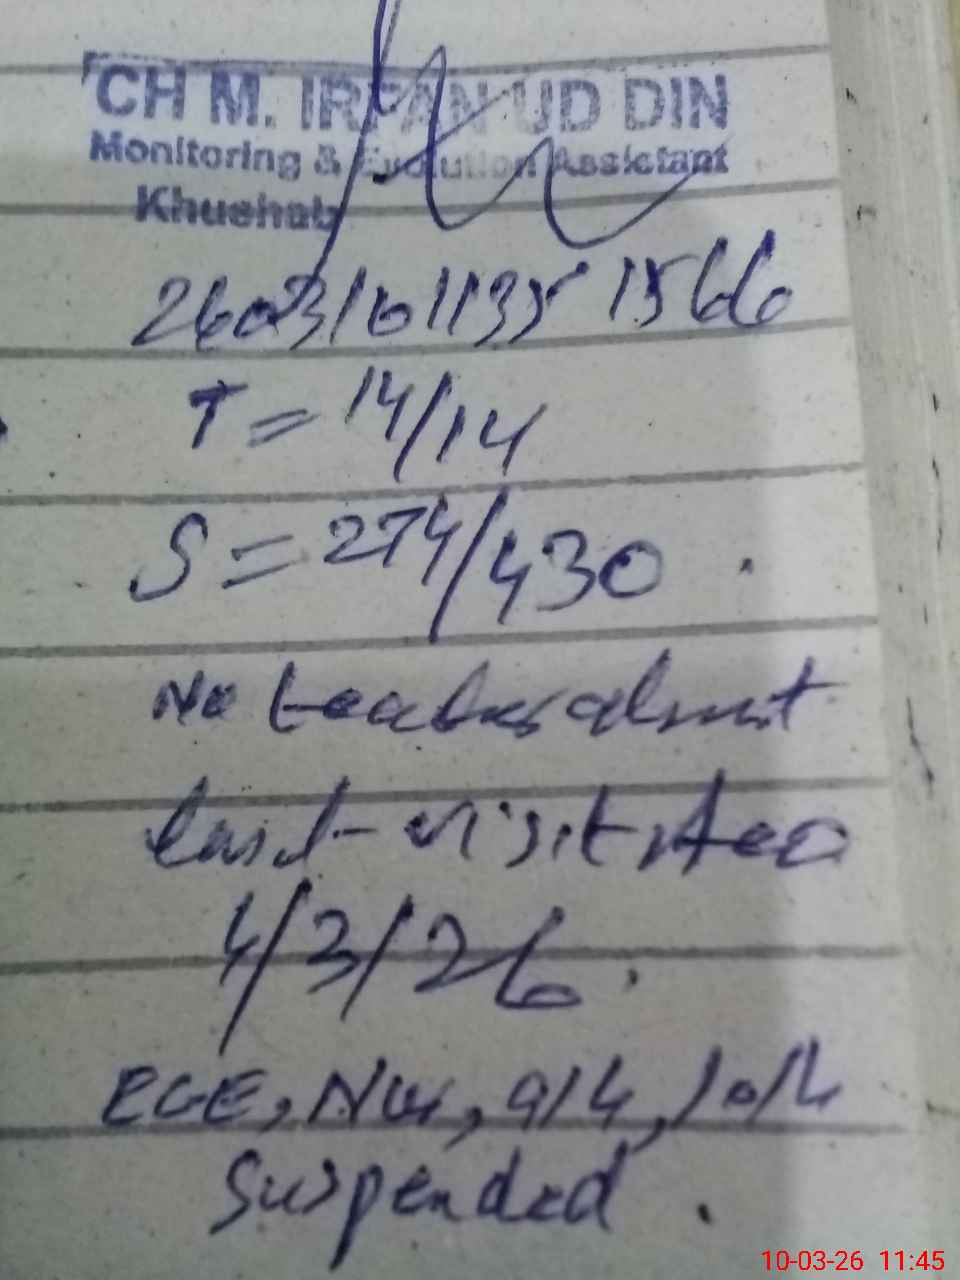 CH M. IRFAN UD DIN
Monitoring & Evolution Assistant
Khushab
26031011351566
T = 14/14
S = 274/430
No teacher absent
last visit Aeo
4/3/26.
ECE, Nur, 9th, 10th
Suspended.
10-03-26 11:45